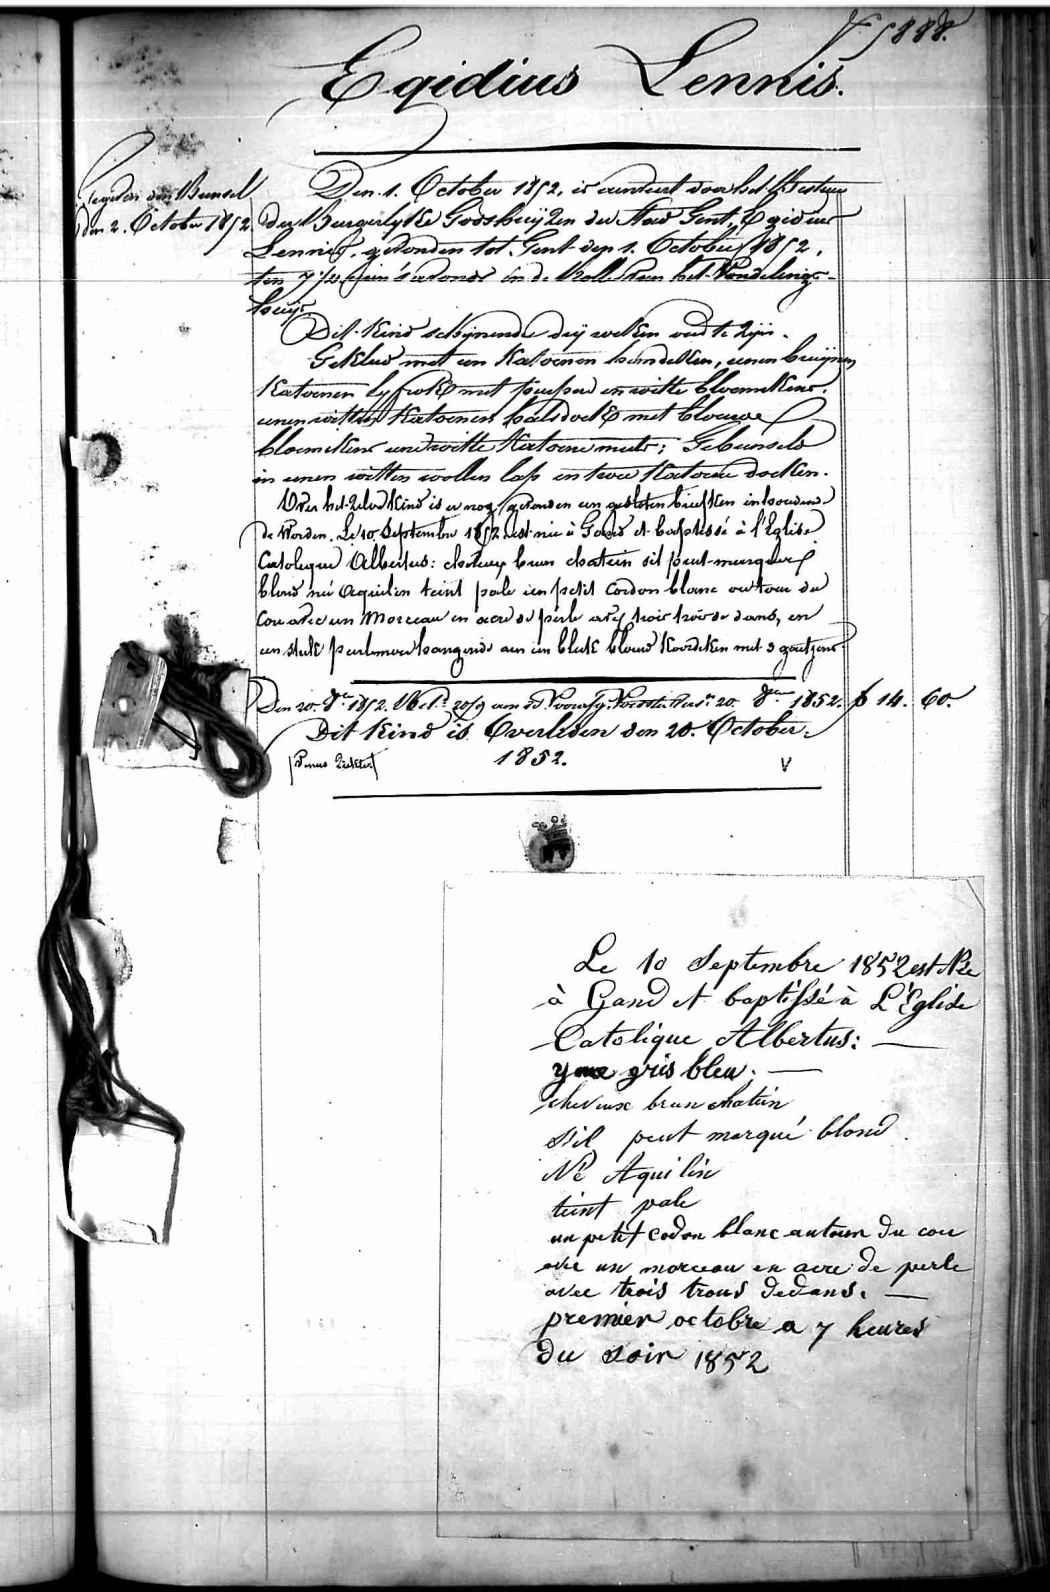 5888.
Egidius Lennis.
den Bussel
den 2. October 1852
Den 1. October 1852, is door het Bestuur
der Burgerlyke Godshuijzen der Stad Gent, Egidius
Lennis, gevonden tot Gent den 1. October 1852,
ten 7 1/2 uren 's avonds in de Rolle van het Vondelings-
huys.
Dit kind schijnende drij weken oud te zijn.
Gekleed met een katoenen hemdeken, eenen bruijnen
katoenen lyfrok met purper en witte bloemekens.
eenen witten katoenen halsdoek met blauwe
bloemekens een witte katoene muts; Gebusseld
in eenen witten wollen lap en twee katoene doeken.
Over het zelve kind is er nog gevonden een gesloten briefken inhoudende
de Worden. Le 10 Septembre 1852 est nie à Gand et baptissé à l'Eglise
Catolique Albertus: cheveux brun chatein sil peut marqué
blond né Aquilin teint pale un petit Cordon blanc autour du
Cou avec un Morceau en acre de perle avec trois trous dedans, en
een stuk hangende aen een blauw koordeken met 3
Den 20. 8re 1852. 20. 8re 1852. f 14. 60.
Dit kind is Overleden den 20. October
1852.
V
Le 10 Septembre 1852 est Née
à Gand et baptissé à L'Église
Catolique Albertus: —
gris bleu. —
cheveux brun chatein
S'il peut marqué blond.
Né Aquilin
teint pale
un petit codon blanc autour du cou
avec un morceau en acre de perle
avec trois trous dedans. —
premier octobre a 7 heures
du soir 1852